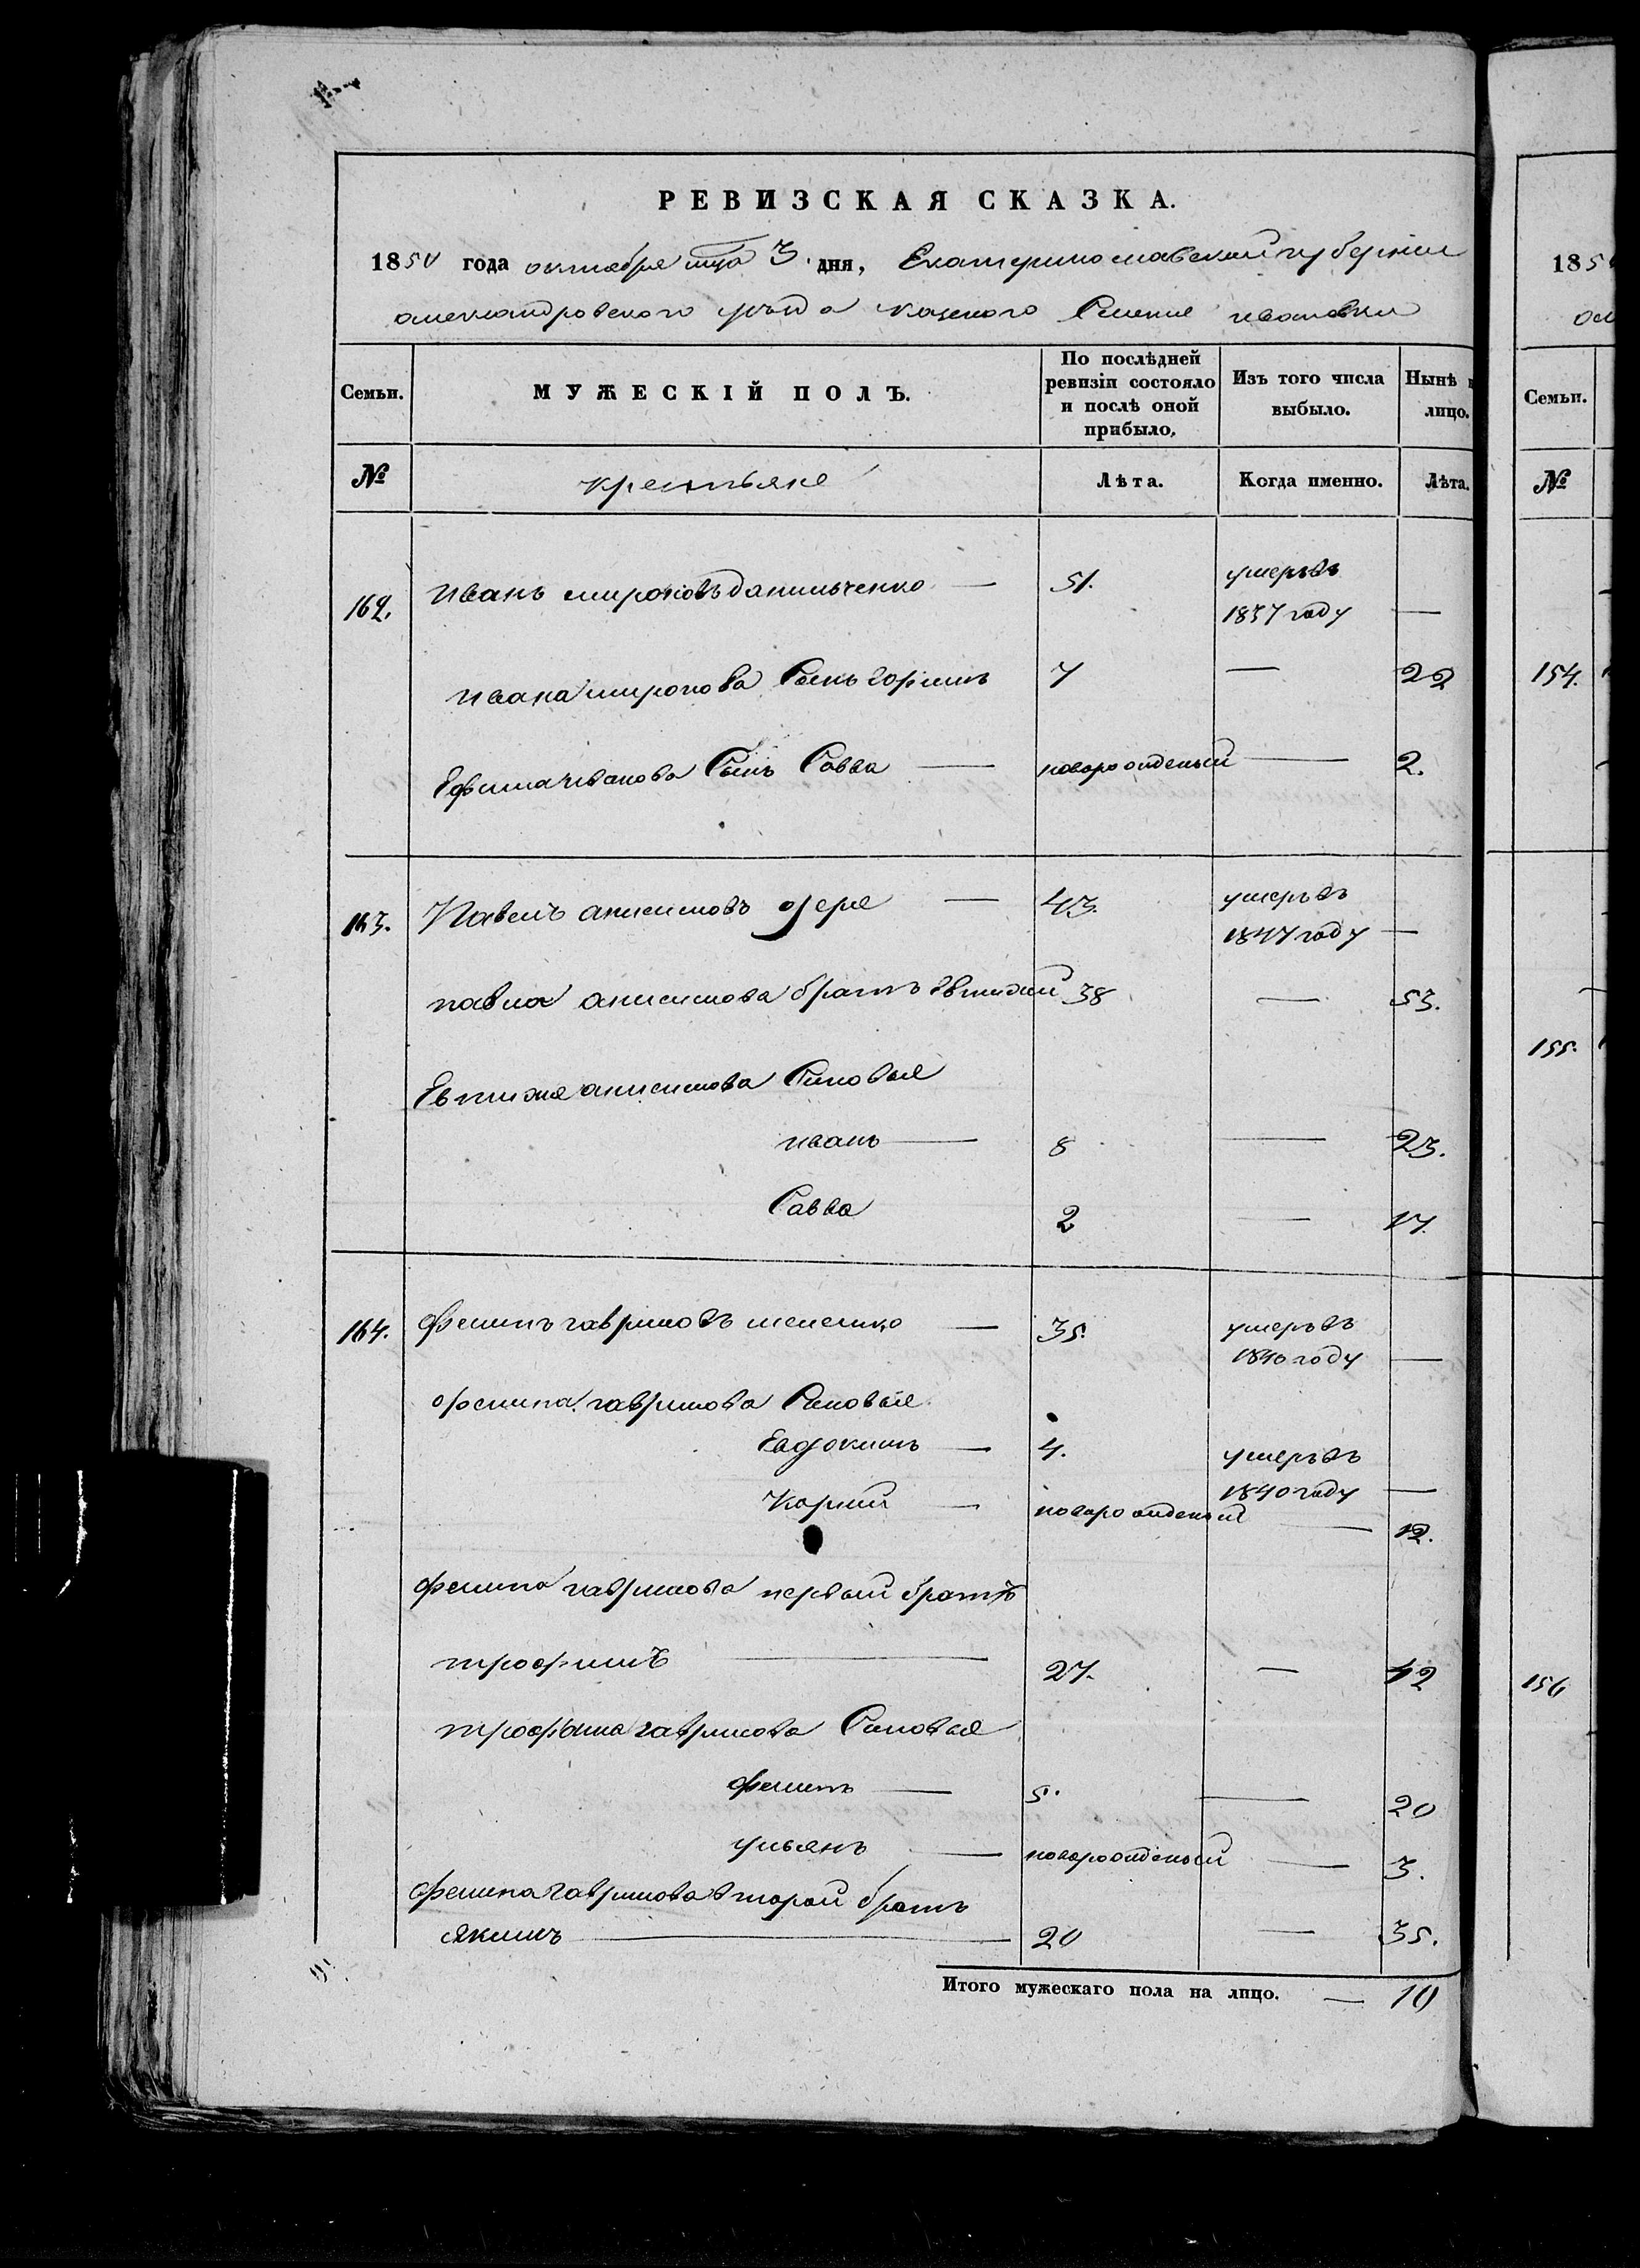 РЕВИЗСКАЯ СКАЗКА.
1850 года октября мца 3 дня, Екатеринославской губернии
александровского уезда казеного Селения ивановки
Семьи. МУЖЕСКІЙ ПОЛЪ. По послѣдней ревизіи состояло и послѣ оной прибыло. Изъ того числа выбыло. Нынѣ лицо.
№ крестьяне Лѣта. Когда именно. Лѣта.
162. иванъ мироновъ данильченко — 51. умеръ въ
1837 году —
ивана миронова Сынъ 7 — 22
Ефима иванова Сынъ Савва — новорожденый — 2.
163. Павелъ анисимовъ — 43. умеръ въ
1847 году —
павла анисимова братъ 38 — 53.
анисимова Сыновья
иванъ — 8 — 23.
Савва 2 — 17.
164. филипъ гавриловъ — 35. умеръ въ
1840 году —
филипа гаврилова Сыновья
Евдокимъ — 4. умеръ въ
1840 году —
Корней — новорожденый — 12.
филипа гаврилова первый братъ
трофимъ — 27. — 42
трофима гаврилова Сыновья
филипъ — 5. — 20
ульянъ — новорожденый — 3.
филипа гаврилова второй братъ
якимъ — 20 — 35.
Итого мужескаго пола на лицо. — 10
185
Семьи.
№
154.
155.
156